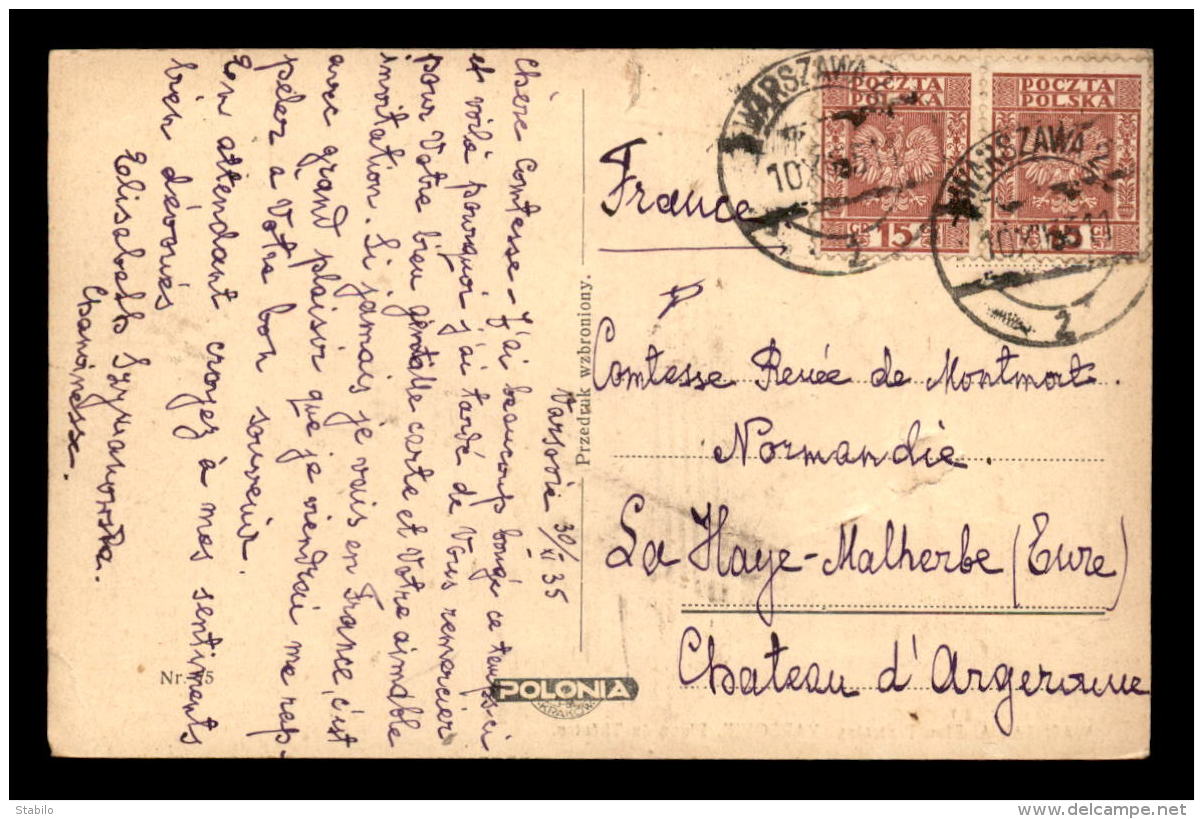 Varsovie 30/XI 35
Chère Comtesse – J'ai beaucoup bougé ce temps ci
et voilà pourquoi j'ai tardé de Vous remercier
pour Votre bien gentille carte et Votre aimable
invitation. Si jamais je vais en France, c'est
avec grand plaisir que je viendrai me rap
peler a Votre bon souvenir.
En attendant croyez à mes sentiments
bien dévoués
Elisabeth Szymanowska.
Chanoinesse.
Nr. 35
Przedruk wzbroniony.
POLONIA
KRAKÓW
POCZTA
POLSKA
GR 15
POCZTA
POLSKA
15
WARSZAWA 2
10 XII 35 11
2
WARSZAWA 2
10 XII 35 11
2
France
Comtesse Renée de Montmort.
Normandie.
La Haye-Malherbe (Eure)
Chateau d'Argeronne
Stabilo
http://www.delcampe.net